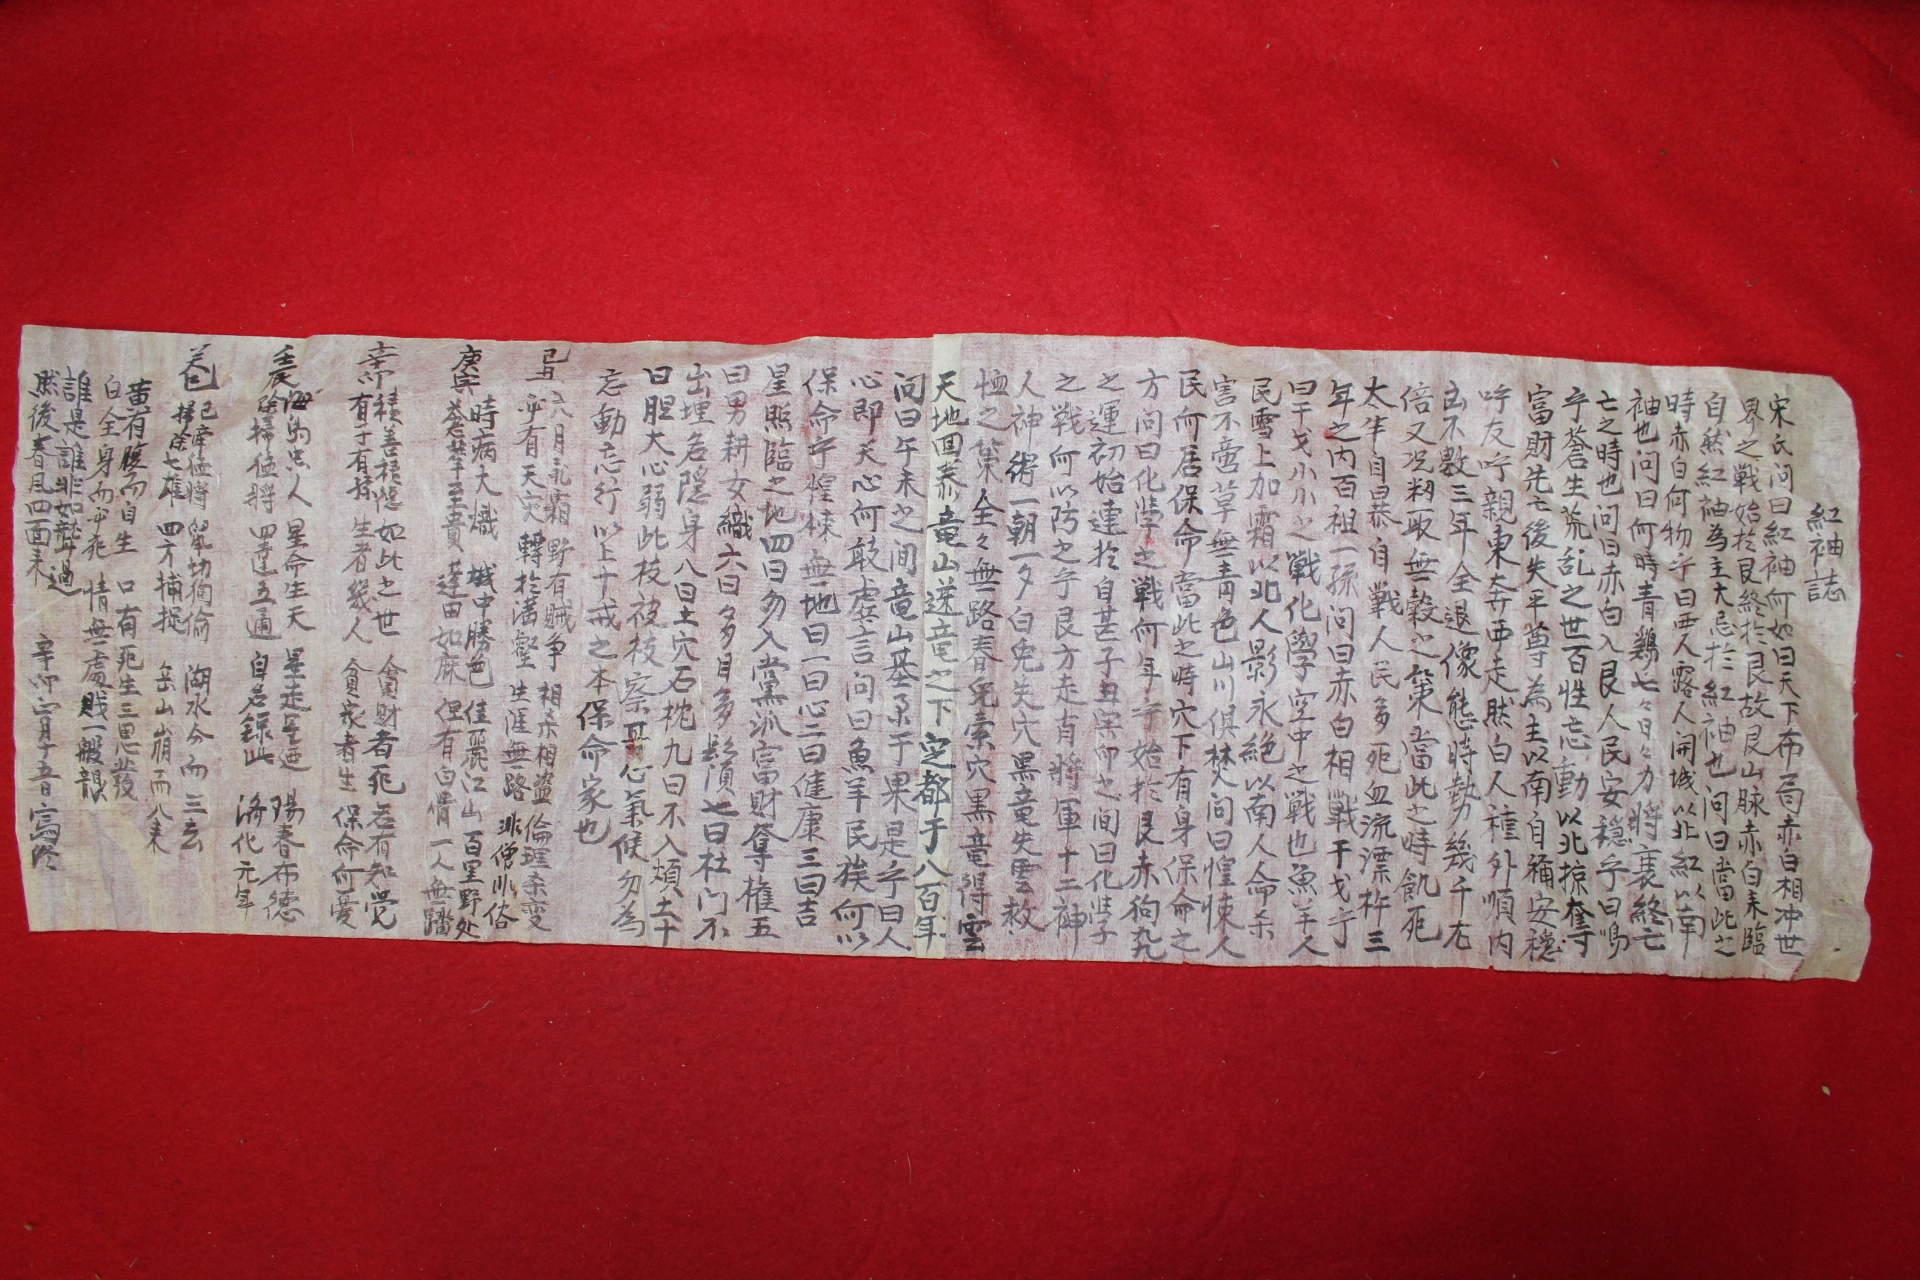 紅袖誌
宋氏問曰紅袖何如曰天下布局赤白相冲世
界之戰始於艮終於艮故艮山脉赤白来臨
自然紅袖為主大忌於紅袖也问曰當此之
時赤白何物乎曰西人露人開城以北紅以南
袖也问曰何時青鷄七々日々力將衰終亡
亡之時也问曰赤白入艮人民安穏乎曰嗚
乎蒼生荒乱之世百性忘動以北掠奪
富財先亡後失平等為主以南自稱安穏
呼友呼親東奔西走然白人種外順内
凶不數三年全退像態時勢幾千
倍又况籾一取無穀之策當此之時飢死
太半自暴自戰人民多死血流漂杵三
年之内百祖一孫问曰赤白相戰干戈乎
曰干戈小小之戰化學空中之戰也魚羊人
民雪上加霜以北人影永絕以南人命杀
害不啻草無青色山川俱焚问曰惶悚人
民何居保命當此之時穴下有身保命之
方问曰化学之戰何年乎始於艮赤狗丸
之運初始連於自甚子丑寅卯之间曰化学
之戰何以防之乎艮方走肖將軍十二神
人神術一朝一夕白兎失穴黒竜失雲救
恤之策全々無路春兎索穴黒竜得雲
天地回泰竜山逆竜之下定都于八百年
问曰午未之间竜山基于果是乎曰人
心即天心何敢虚言问曰魚羊民族何以
保命乎惶悚無地曰一曰心二曰健康三曰吉
星照臨之地四曰勿入黨派富財奪權五
曰男耕女織六曰多目多鬚七曰杜门不
出埋名隠身八曰土穴石枕九曰不入煩土十
曰胆大心弱此枝彼枝察其心氣候勿為
忘動忘行以上十戒之本保命家也
己丑 六月飛霜 野有賊争 相杀相盗 倫理杀变
必有天灾 轉於溝壑 生涯無路 非僧非俗
庚寅 時病大熾 城中勝色 佳麗江山 百里野处
蒼華至貴 蓬田如麻 但有白骨 一人無踏
辛卯 積善積德 如此之世 貪財者死 若有知覺
有子有情 生者幾人 貧家者生 保命何憂
壬辰 海島忠人 星命生天 星走星西 陽春布德
除掃極將 四達五通 自名録此 济化元年
癸巳 湖水分而三去
掃除七雄 四方捕捉 岳山崩而八来
黄有腹而自生 口有死生三思發
白全身而必死 情無處賤一般韻
誰是誰非如聾過
然後春風四面来 辛卯正月十五日 寫终